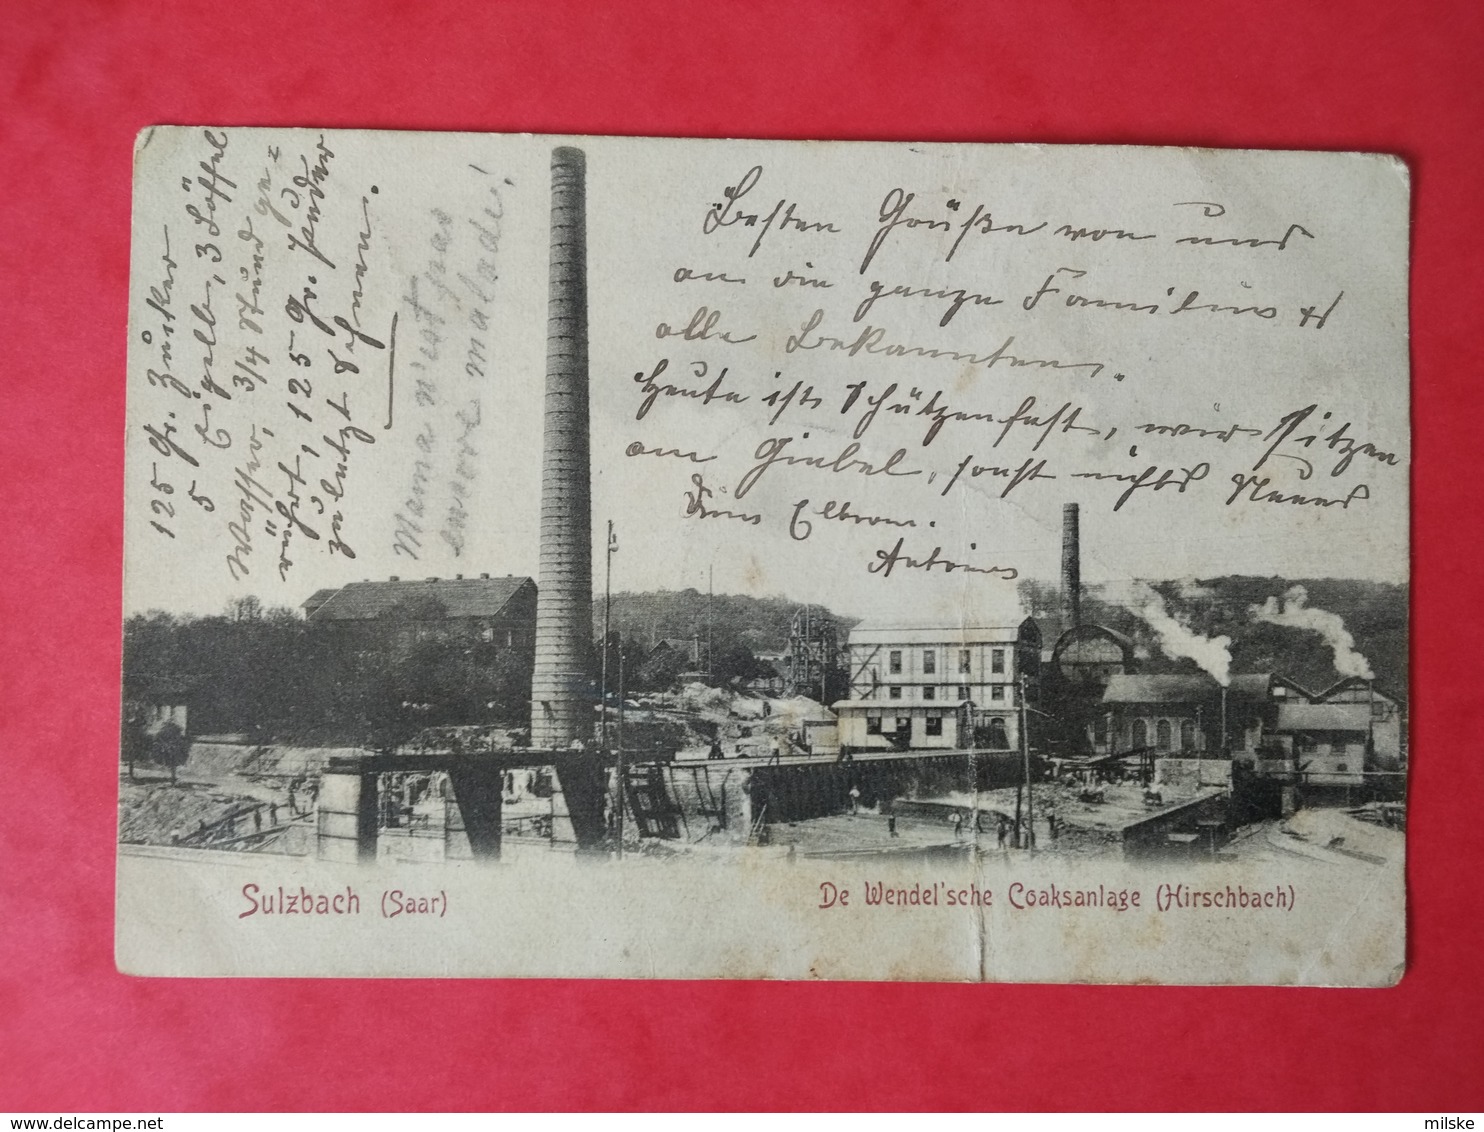 125 Gr. Zucker
5 Eigelb, 3 Löffel
Wasser, 3/4 Stund ge=
rührt, 125 Gr. Puder
zuletzt Schnee.
Mama n'est pas
encore malade!
Besten Grüße von uns
an die ganze Familie &
alle Bekannten.
Heute ist Schützenfest, wir sitzen
am Giebel, sonst nichts Neues
Antoine
Sulzbach (Saar)
De Wendel'sche Coaksanlage (Hirschbach)
www.delcampe.net
milske